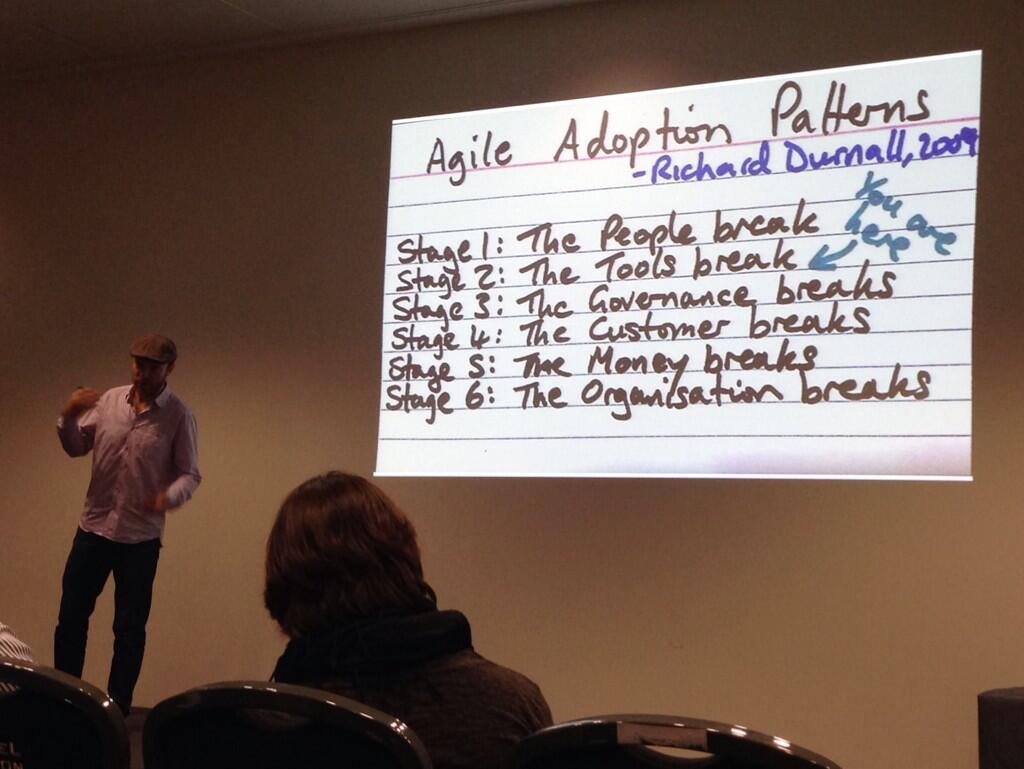 Agile Adoption Patterns
-Richard Durnall, 2009
You are
here
Stage 1: The People break
Stage 2: The Tools break
Stage 3: The Governance breaks
Stage 4: The Customer breaks
Stage 5: The Money breaks
Stage 6: The Organisation breaks
EL